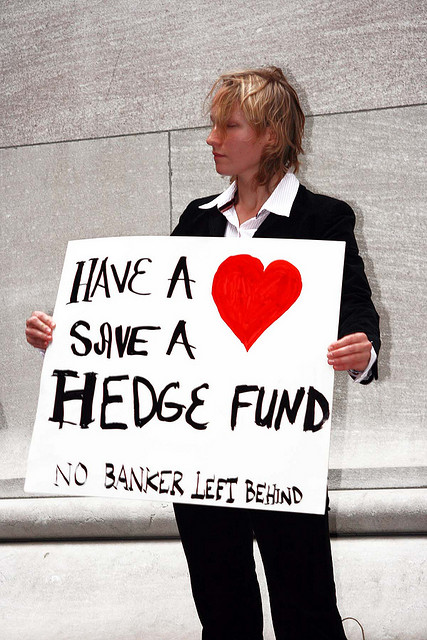 HAVE A
SAVE A
HEDGE FUND
NO BANKER LEFT BEHIND